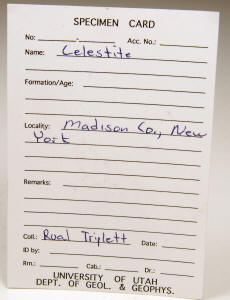 SPECIMEN CARD
No: Acc. No.:
Name: Celestite
Formation/Age:
Locality: Madison Co., New
York
Remarks:
Coll.: Rual Triplett Date:
ID by:
Rm.: Cab.: Dr.:
UNIVERSITY OF UTAH
DEPT. OF GEOL. & GEOPHYS.